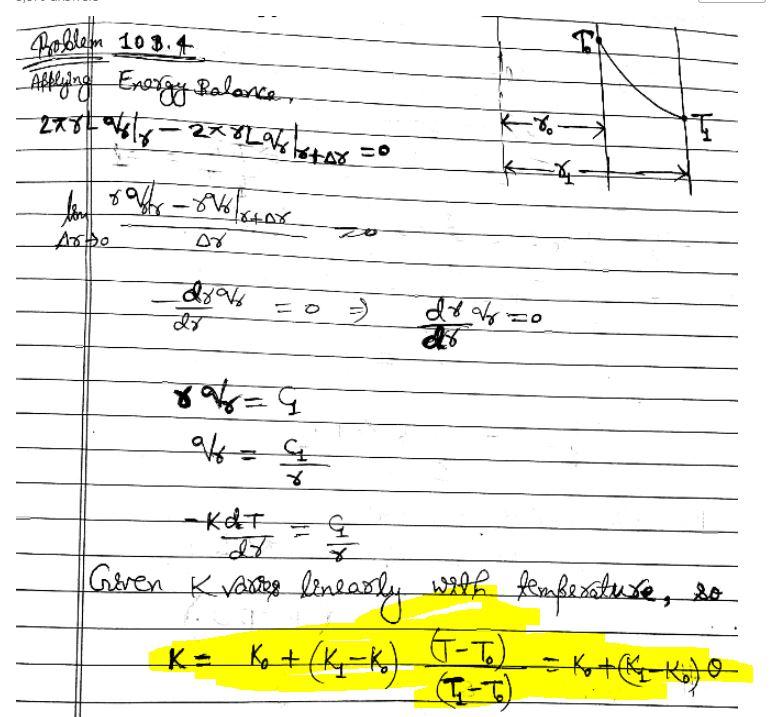 Problem 10B.4
Applying Energy Balance,
2πrL qr|r − 2πrL qr|r+Δr = 0
lim Δr→0 (r qr|r − r qr|r+Δr) / Δr = 0
− d r qr / dr = 0 ⇒ d r qr / dr = 0
r qr = C1
qr = C1 / r
−K dT / dr = C1 / r
Given K varies linearly with temperature, so
K = K0 + (K1 − K0) (T − T0) / (T1 − T0) = K0 + (K1 − K0) θ
T0
T1
r0
r1